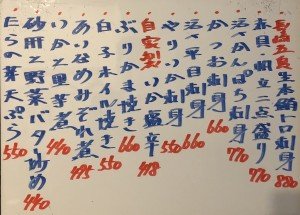 長崎五島 生本鮪トロ刺身 880
本目明立二点盛り 770
活〆かんぱち刺身 770
かつお刺身 660
活〆平目刺身 660
やりいか刺身 550
自家製 いか塩辛 418
ぶりかま焼き 660
白子ホイル焼き 550
あいなめみぞれ煮 495
いかと里芋煮 440
砂肝と野菜バタ炒め 440
たらの芽天ぷら 550